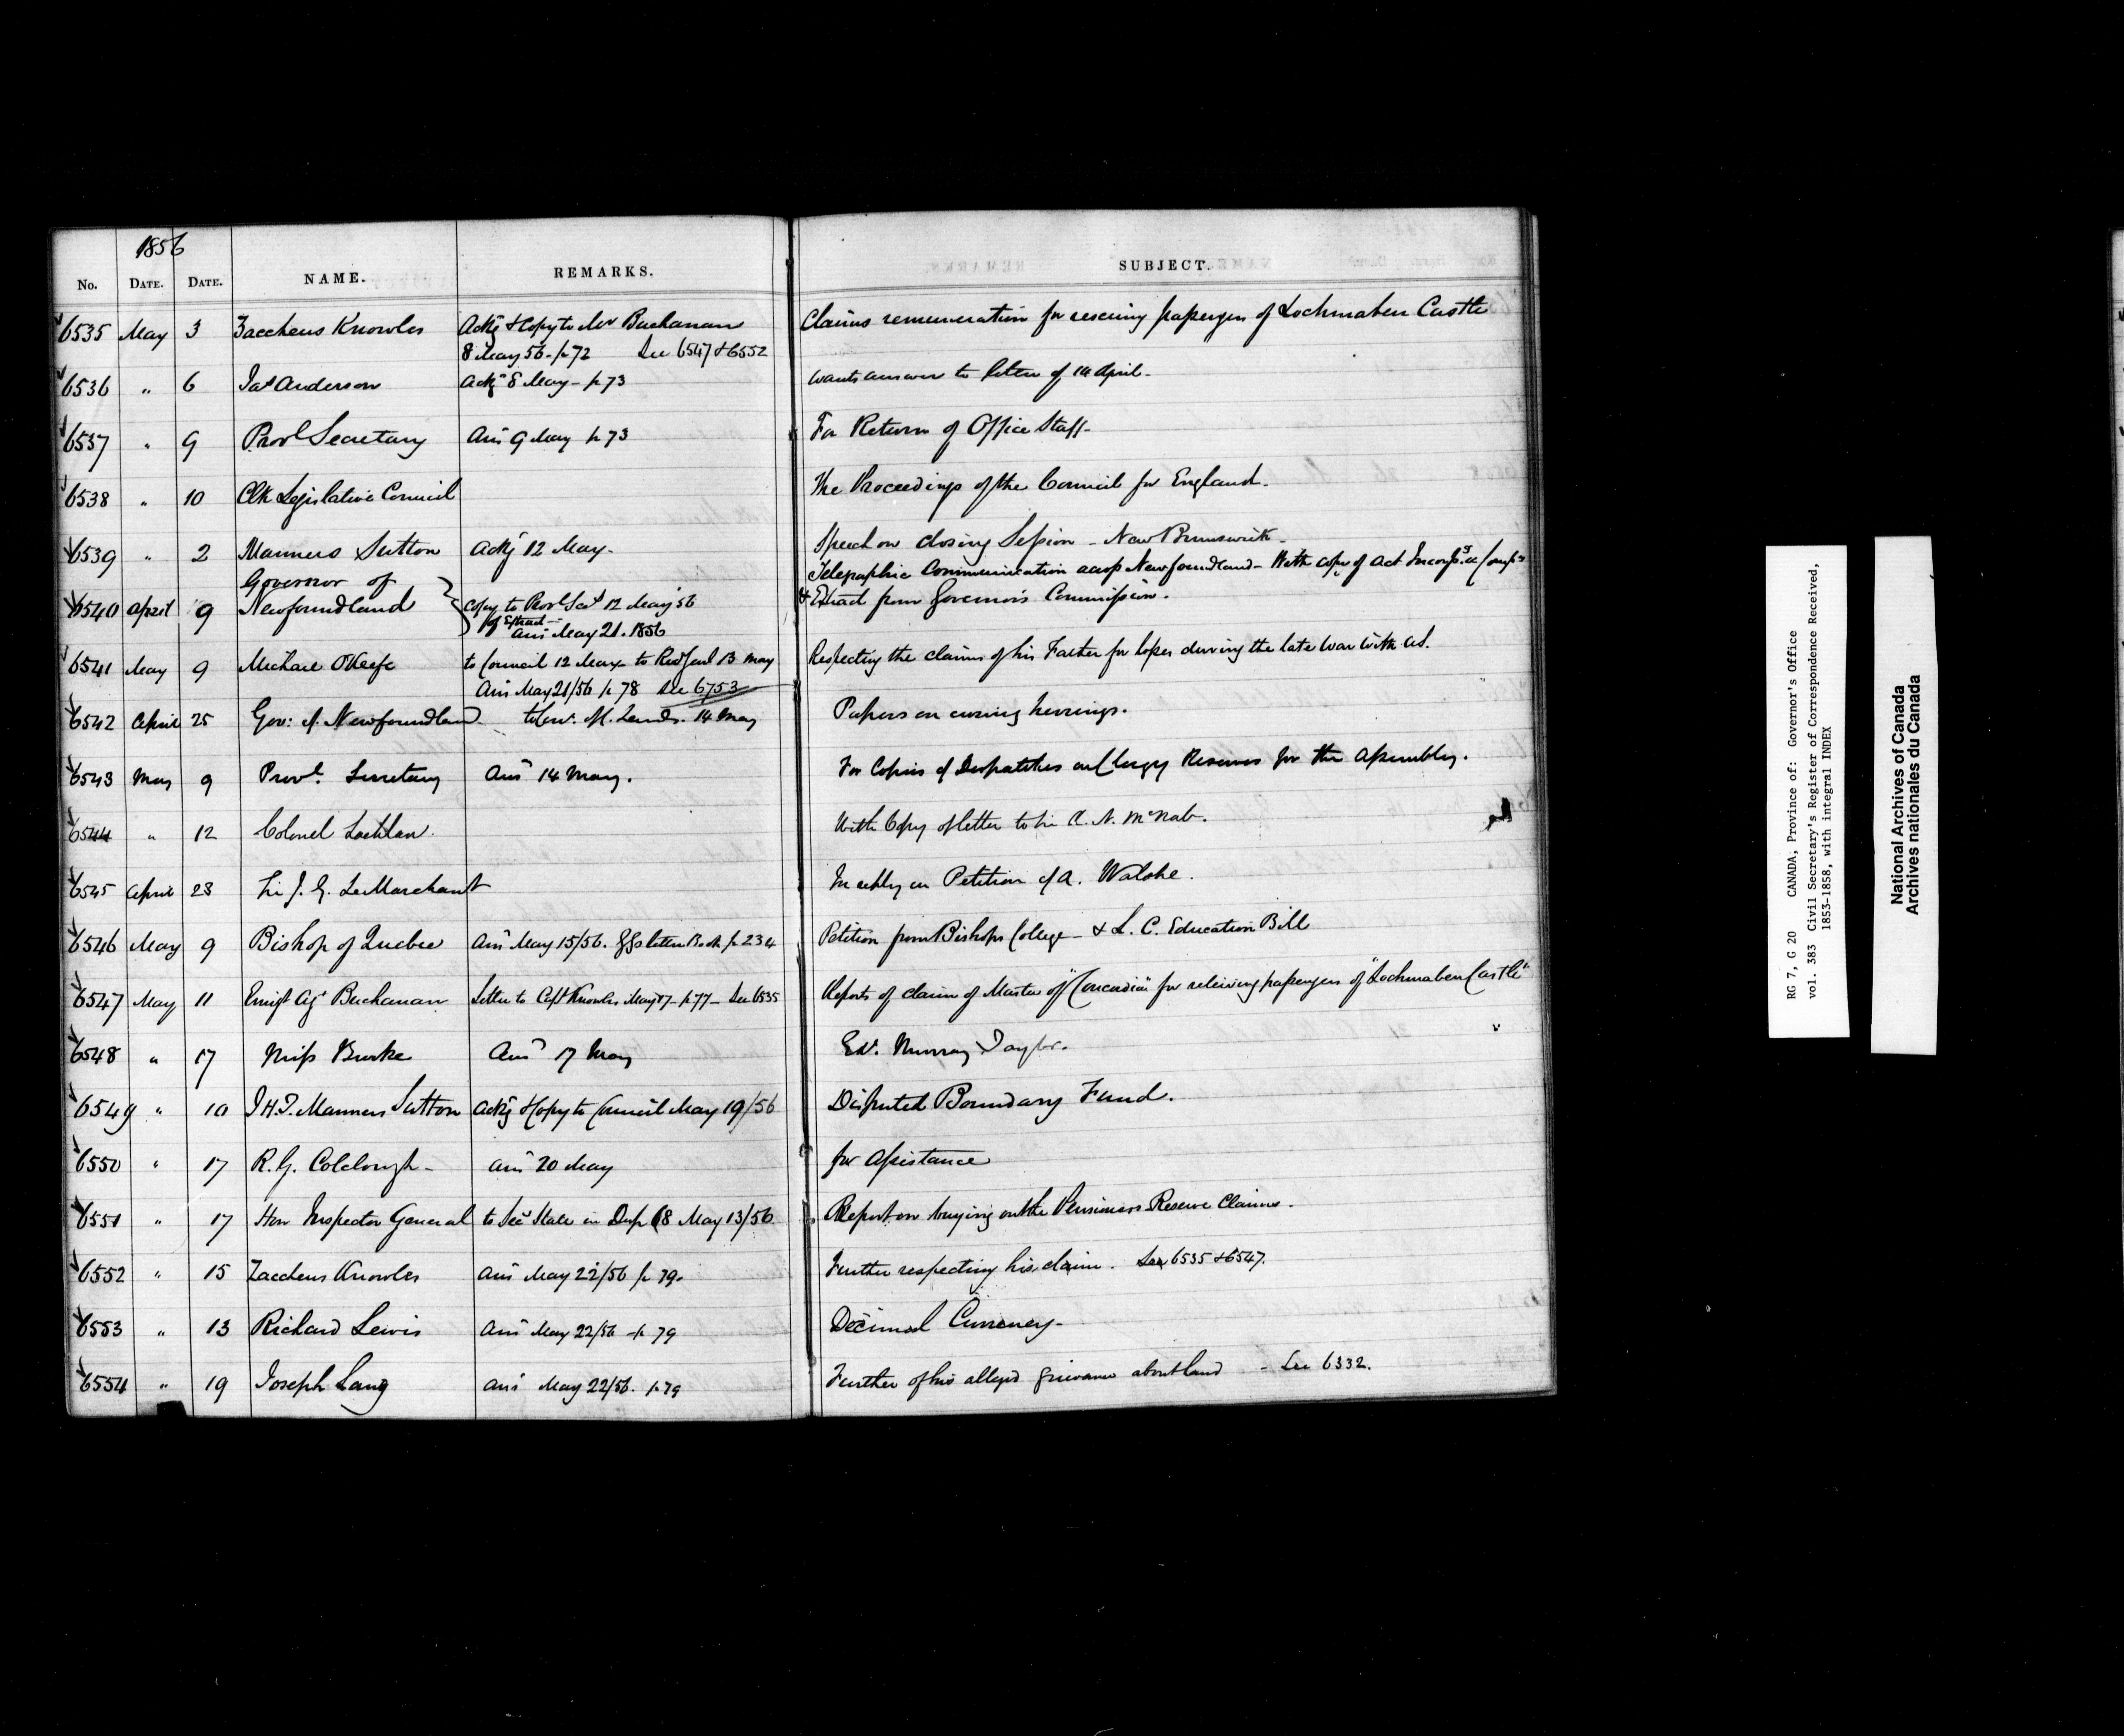 1856
No. DATE. DATE. NAME. REMARKS. SUBJECT.
6535 May 3 Zaccheus Knowles Ackg & Copy to Mr Buchanan Claims remuneration for rescuing passengers of Lochmaben Castle
8 May 56 - p 72 See 6547 & 6552
6536 " 6 Jas Anderson Ackg 8 May - p 73 Wants answer to letter of 14 April -
6537 " 9 Provl Secretary Ansd 9 May p 73 For Return of Office Staff -
6538 " 10 Clk Legislative Council The Proceedings of the Council for England.
6539 " 2 Manners Sutton Ackg 12 May. Speech on closing Session - New Brunswick -
6540 April 9 Governor of Newfoundland Copy to Provl Secy 12 May 56 Telegraphic Communication across Newfoundland - With copy of Act
of Extract - Ansd May 21. 1856 & Extract from Governor's Commission.
6541 May 9 Michael O'Keefe to Council 12 May - to 13 May Respecting the claims of his Father for losses during the late War with U.S.
Ansd May 21/56 p 78 See 6753
6542 April 25 Gov: of Newfoundland. 14 May Papers on curing herrings.
6543 May 9 Provl. Secretary Ansd 14 May. For Copies of Despatches on Clergy Reserves for the Assembly.
6544 " 12 Colonel Lachlan. With Copy of letter to Sir A. N. McNab.
6545 April 23 Sir J. G. LeMarchant In reply on Petition of A.
6546 May 9 Bishop of Quebec Ansd May 15/56. letter Book p 234 Petition from Bishops College - & L. C. Education Bill
6547 May 11 Emigt Agt Buchanan Letter to Capt Knowles May 17 - p 77 - See 6535 Reports of claim of Master of "Concordia" for relieving passengers of "Lochmaben Castle"
6548 " 17 Miss Burke Ansd 17 May Ed. Murray Taylor.
6549 " 10 J. H. T. Manners Sutton Ackg & Copy to Council May 19/56 Disputed Boundary Fund.
6550 " 17 R. G. Colclough - Ansd 20 May for Assistance
6551 " 17 Hon Inspector General to Secy State in Desp 68 May 13/56 Report on buying out the Pensioners Reserve Claims.
6552 " 15 Zaccheus Knowles Ansd May 22/56 p 79. Further respecting his claim. See 6535 & 6547.
6553 " 13 Richard Lewis Ansd May 22/56 - p 79 Decimal Currency -
6554 " 19 Joseph Lang Ansd May 22/56. p 79 Further of his alleged grievance about land - See 6332.
RG 7, G 20 CANADA, Province of: Governor's Office
vol. 383 Civil Secretary's Register of Correspondence Received,
1853-1858, with integral INDEX
National Archives of Canada
Archives nationales du Canada